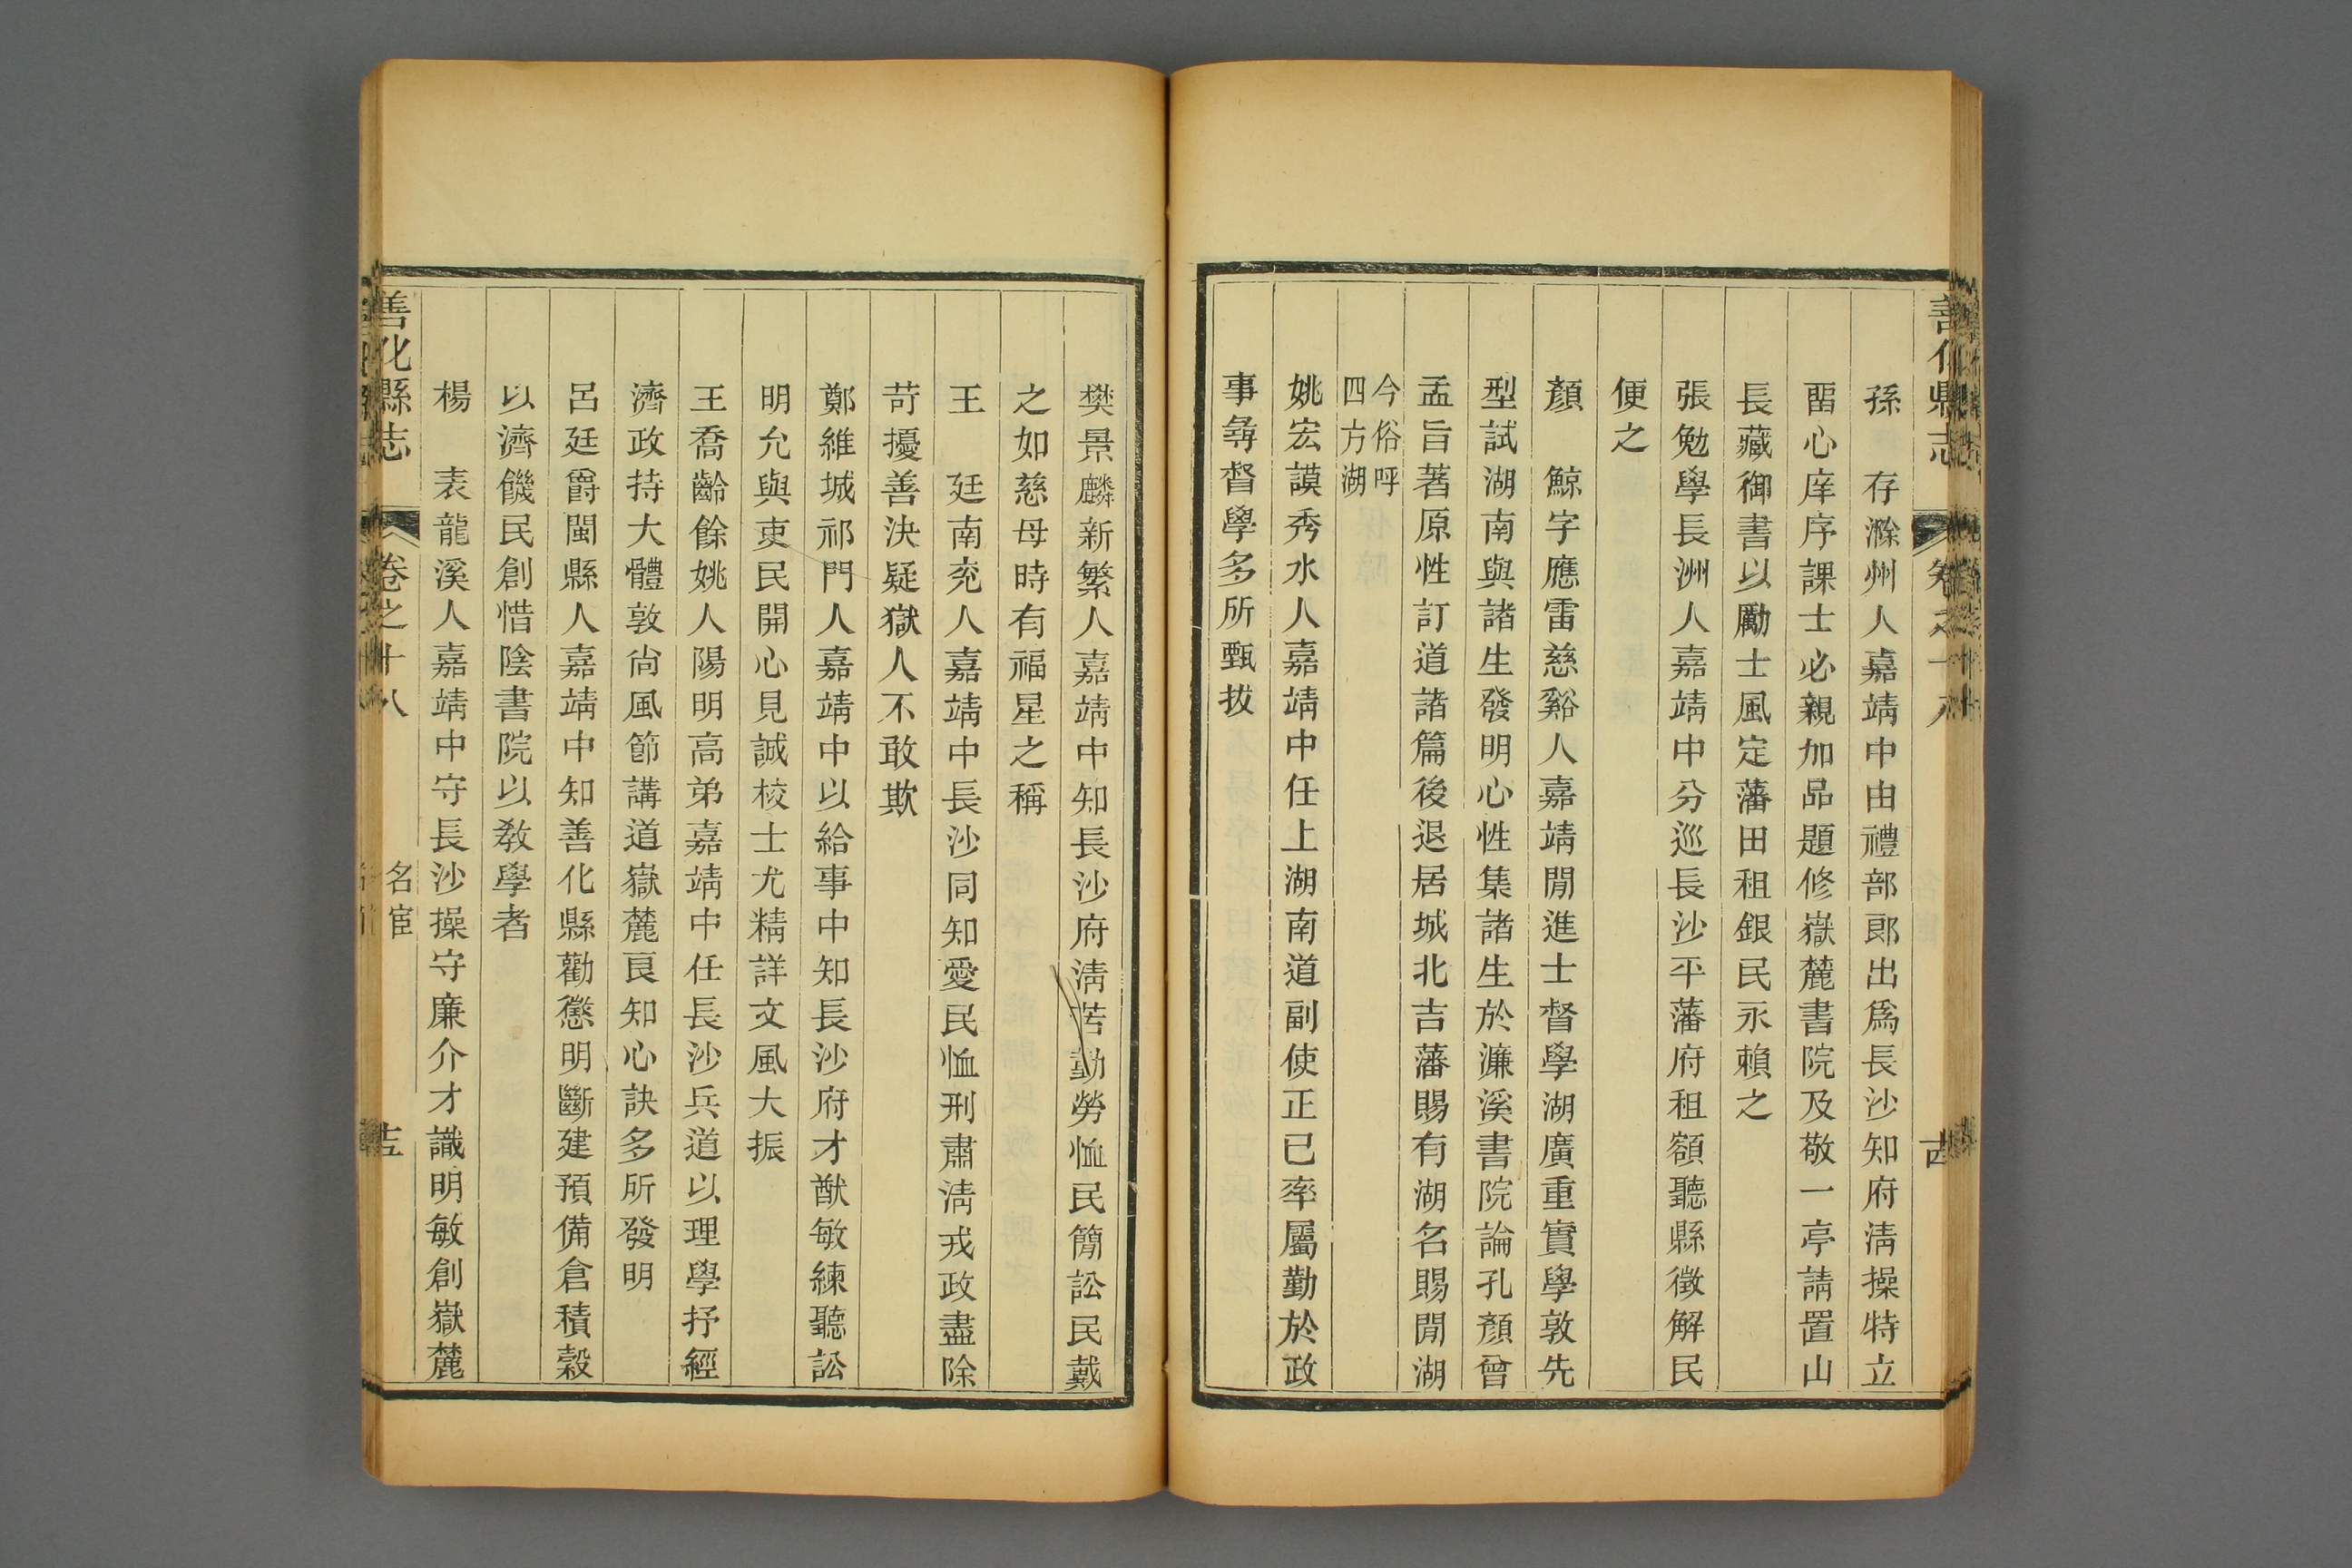 孫　存滁州人嘉靖中由禮部郎出爲長沙知府清操特立
畱心庠序課士必親加品題修嶽麓書院及敬一亭請置山
長藏御書以勵士風定藩田租銀民永賴之
張勉學長洲人嘉靖中分巡長沙平藩府租額聽縣徵解民
便之
顏　鯨字應雷慈谿人嘉靖閒進士督學湖廣重實學敦先
型試湖南與諸生發明心性集諸生於濂溪書院論孔顏曾
孟旨著原性訂道諸篇後退居城北吉藩賜有湖名賜閒湖
今俗呼
四方湖
姚宏謨秀水人嘉靖中任上湖南道副使正己率屬勤於政
事毎督學多所甄拔
樊景麟新繁人嘉靖中知長沙府淸苦勤勞恤民簡訟民戴
之如慈母時有福星之稱
王　廷南充人嘉靖中長沙同知愛民恤刑肅淸戎政盡除
苛擾善決疑獄人不敢欺
鄭維城祁門人嘉靖中以給事中知長沙府才猷敏練聽訟
明允與吏民開心見誠校士尤精詳文風大振
王喬齡餘姚人陽明高弟嘉靖中任長沙兵道以理學抒經
濟政持大體敦尙風節講道嶽麓良知心訣多所發明
呂廷爵閩縣人嘉靖中知善化縣勸懲明斷建預備倉積穀
以濟饑民創惜陰書院以教學者
楊　表龍溪人嘉靖中守長沙操守廉介才識明敏創嶽麓
善化縣志　卷之十八　名宦